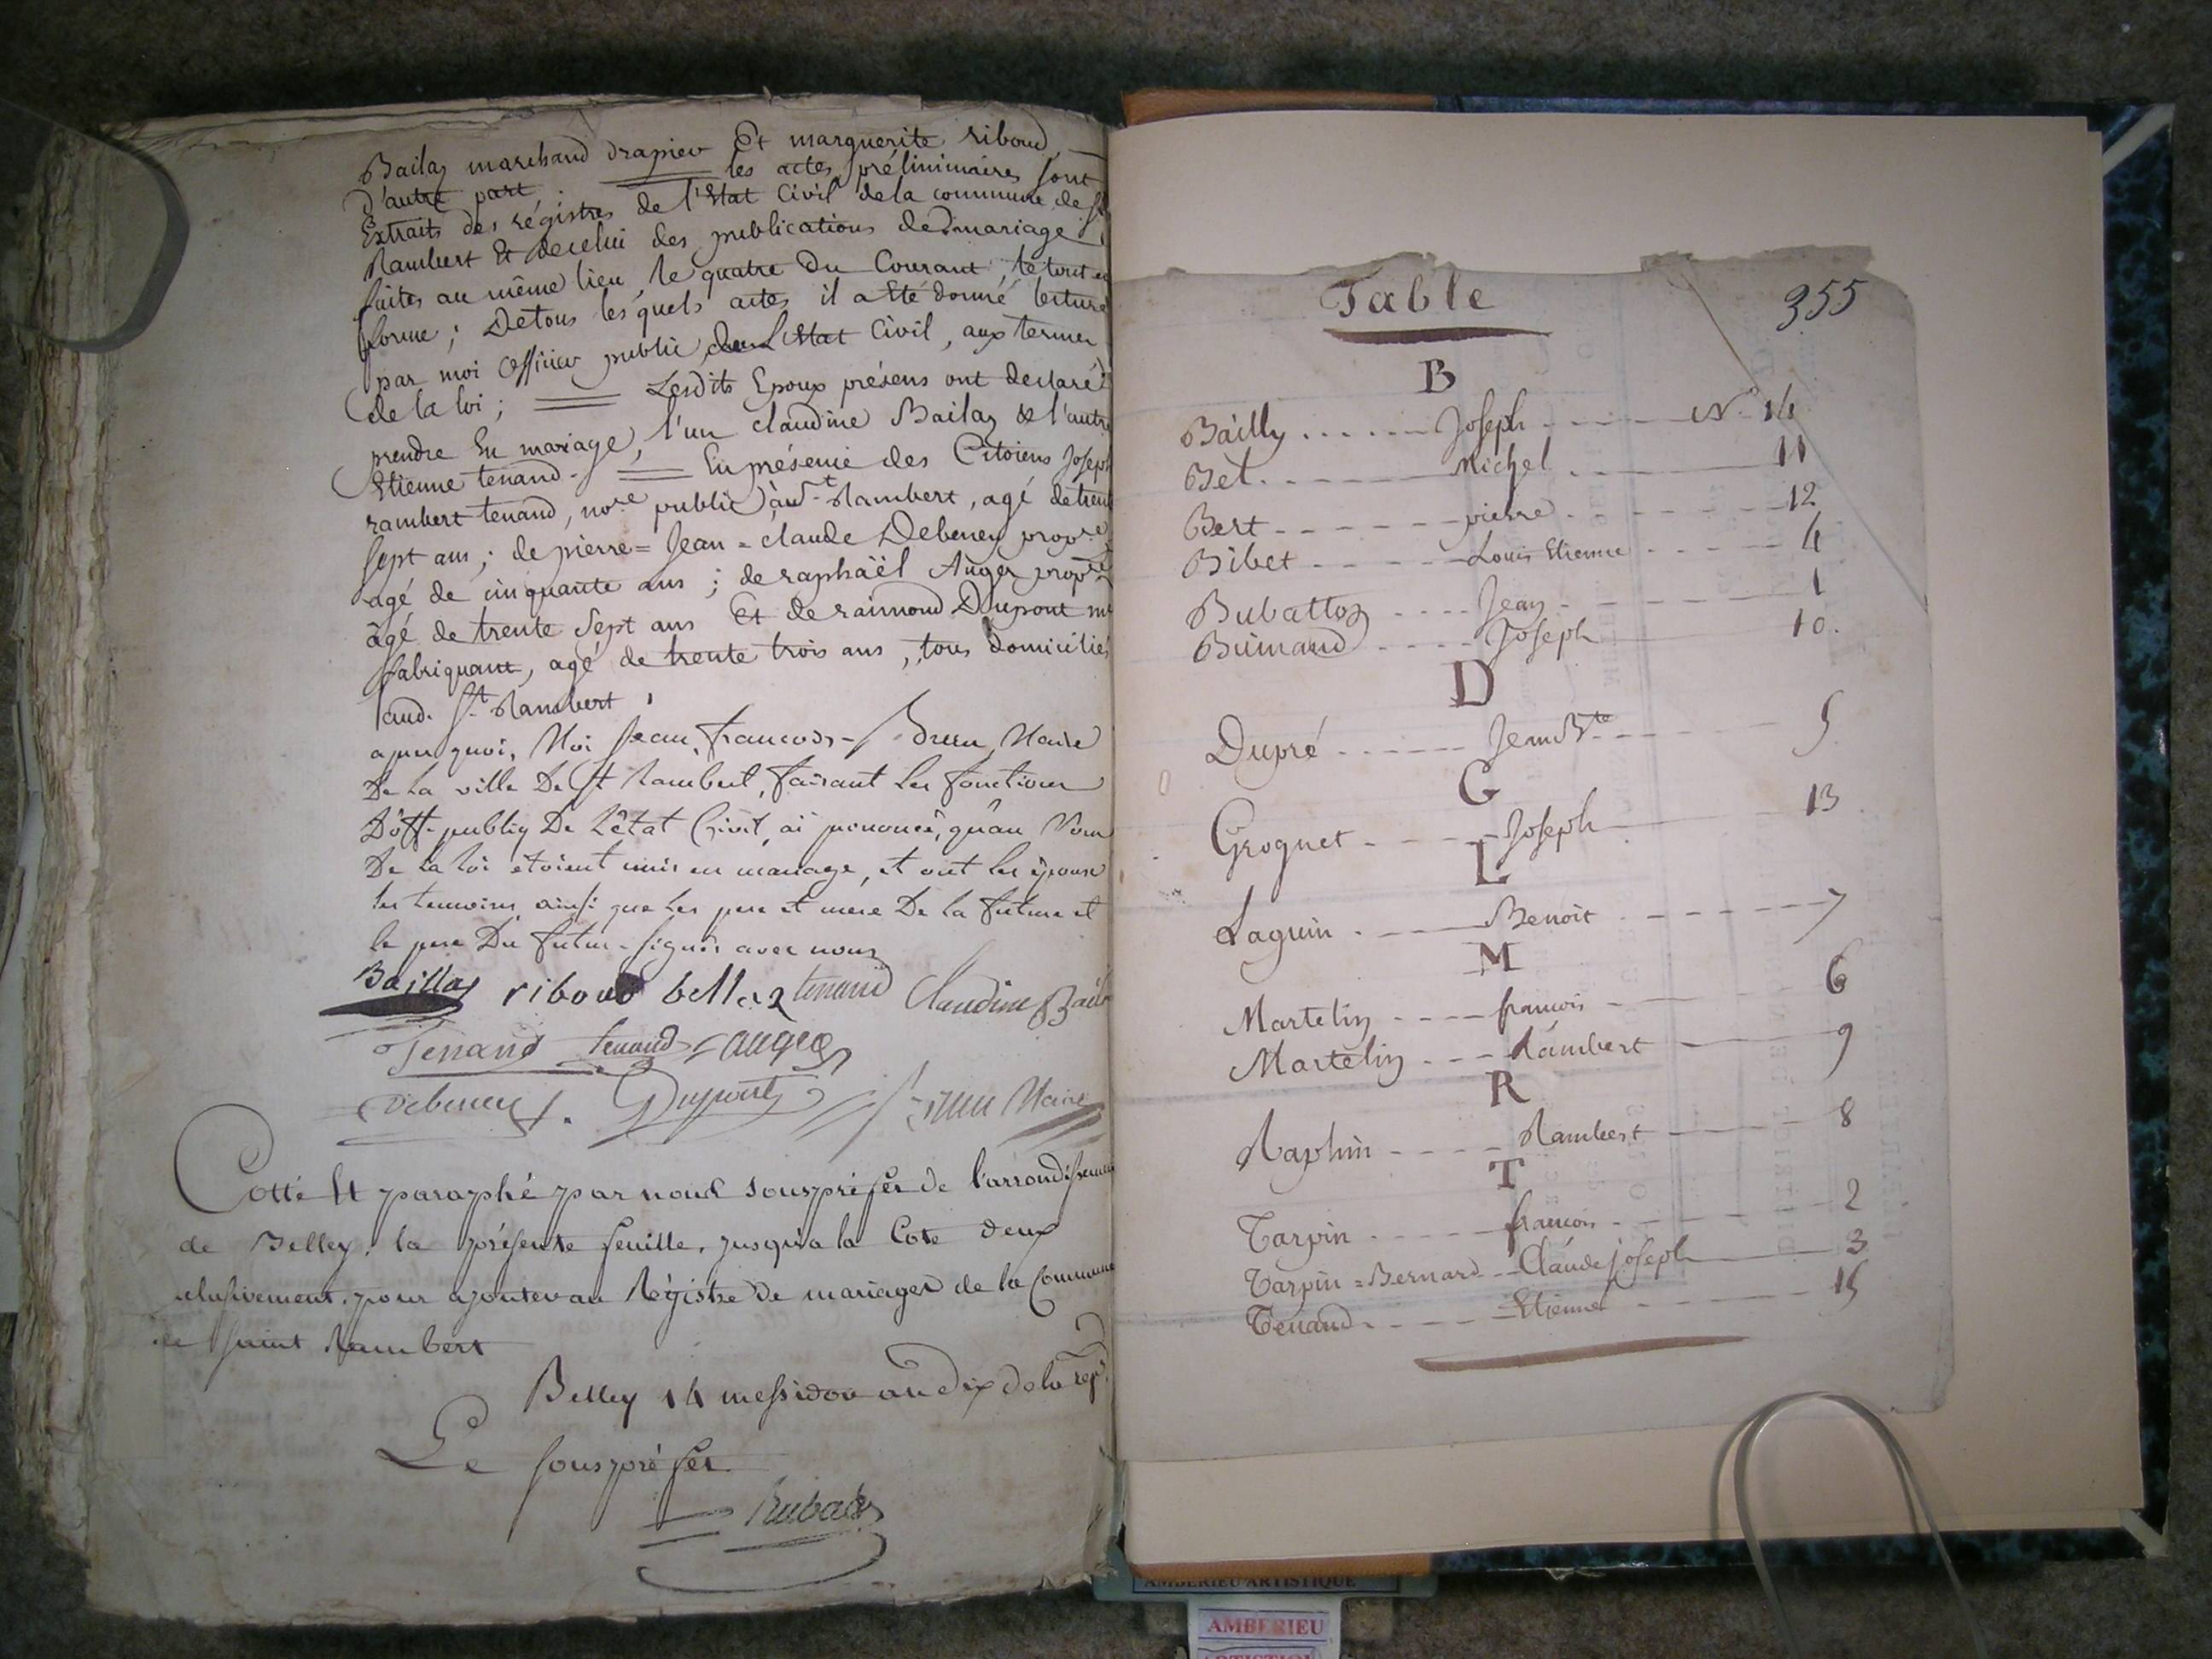 Bailaz marchand drapier Et marguerite riboud,
d'autre part. les actes préliminaires sont
Extraits des régistres de l'Etat Civil de la commune de St
Rambert Et de celui des publications de mariage
faites au même lieu, le quatre du Courant, le tout en
forme; De tous lesquels actes il a Eté donné lecture
par moi officier public de l'Etat Civil, aux termes
de la loi; Lesdits Epoux présens ont déclaré
prendre En mariage, l'un claudine Bailaz & l'autre
Etienne tenand. En présence des Citoiens Joseph
rambert tenand, nore public aud. St Rambert, agé de trente
sept ans; de pierre = Jean = claude Debeney propre
agé de cinquante ans; de raphaël Auger propre
âgé de trente Sept ans Et de raimond Dupont
fabriquant, agé de trente trois ans, tous domiciliés
aud. St Rambert,
apres quoi, Moi Jean, francois Maire
De la ville De St Rambert, faisant les fonctions
D'off. public De L'état Civil, ai prononcé, qu'au Nom
De la loi étoient unis en mariage, et ont les époux
les temoins ainsi que les pere et mere De la future et
le pere Du futur signés avec nous
Baillaz riboud bellaz tenand Claudine Bail
Tenand tenand auger
Debeney Dupont Maire
Cotté Et paraphé par nous souspréfet de l'arrondissement
de Belley, la présente feuille, jusqu'a la Cote deux
inclusivement, pour ajouter au Régistre de mariages de la Commune
de Saint Rambert
Belley 14 messidor an dix de la rep.
Le souspréfet
Table 355
B
Bailly Joseph N° 14
Bet Michel 11
Bert pierre 12
Bibet Louis Etienne 4
Bubatton Jean 1
Bumand Joseph 10.
D
Dupré Jean Bte 5
G
Groguet Joseph 13
L
Laguin Benoit 7
M
Martelin francois 6
Martelin Rambert 9
R
Raphin Rambert 8
T
Tarpin francois 2
Tarpin = Bernard Claude joseph 3
Tenand Etienne 15
AMBERIEU ARTISTIQUE
AMBERIEU